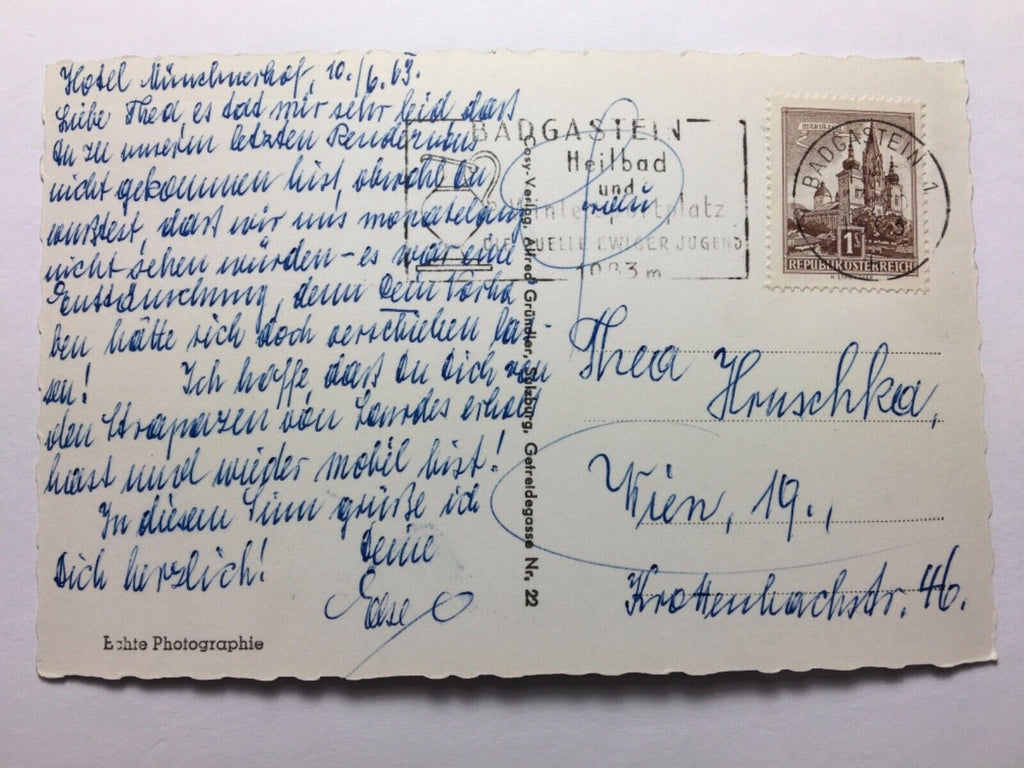 Hotel Münchnerhof, 10./6.63.
Liebe Thea, es tad mir sehr leid daß
Du zu unserm letzten Rendezvous
nicht gekommen bist, obwohl Du
wußtest, daß wir uns monatelang
nicht sehen würden – es war eine
Enttäuschung, denn Dein Vorha
ben hätte sich doch verschieben las-
sen! Ich hoffe daß Du Dich von
den Strapazen von Lourdes erholt
hast und wieder mobil bist!
In diesem Sinn grüße ich
Dich herzlich! Deine
Echte Photographie
Cosy-Verlag, Alfred Gründler, Salzburg, Getreidegasse Nr. 22
BADGASTEIN
Heilbad
und
Wintersportplatz
DIE QUELLE EWIGER JUGEND
1083 m
MARIAZELL
BADGASTEIN 1
1S
REPUBLIK ÖSTERREICH
Thea
Hruschka,
Wien, 19.,
Krottenbachstr. 46.